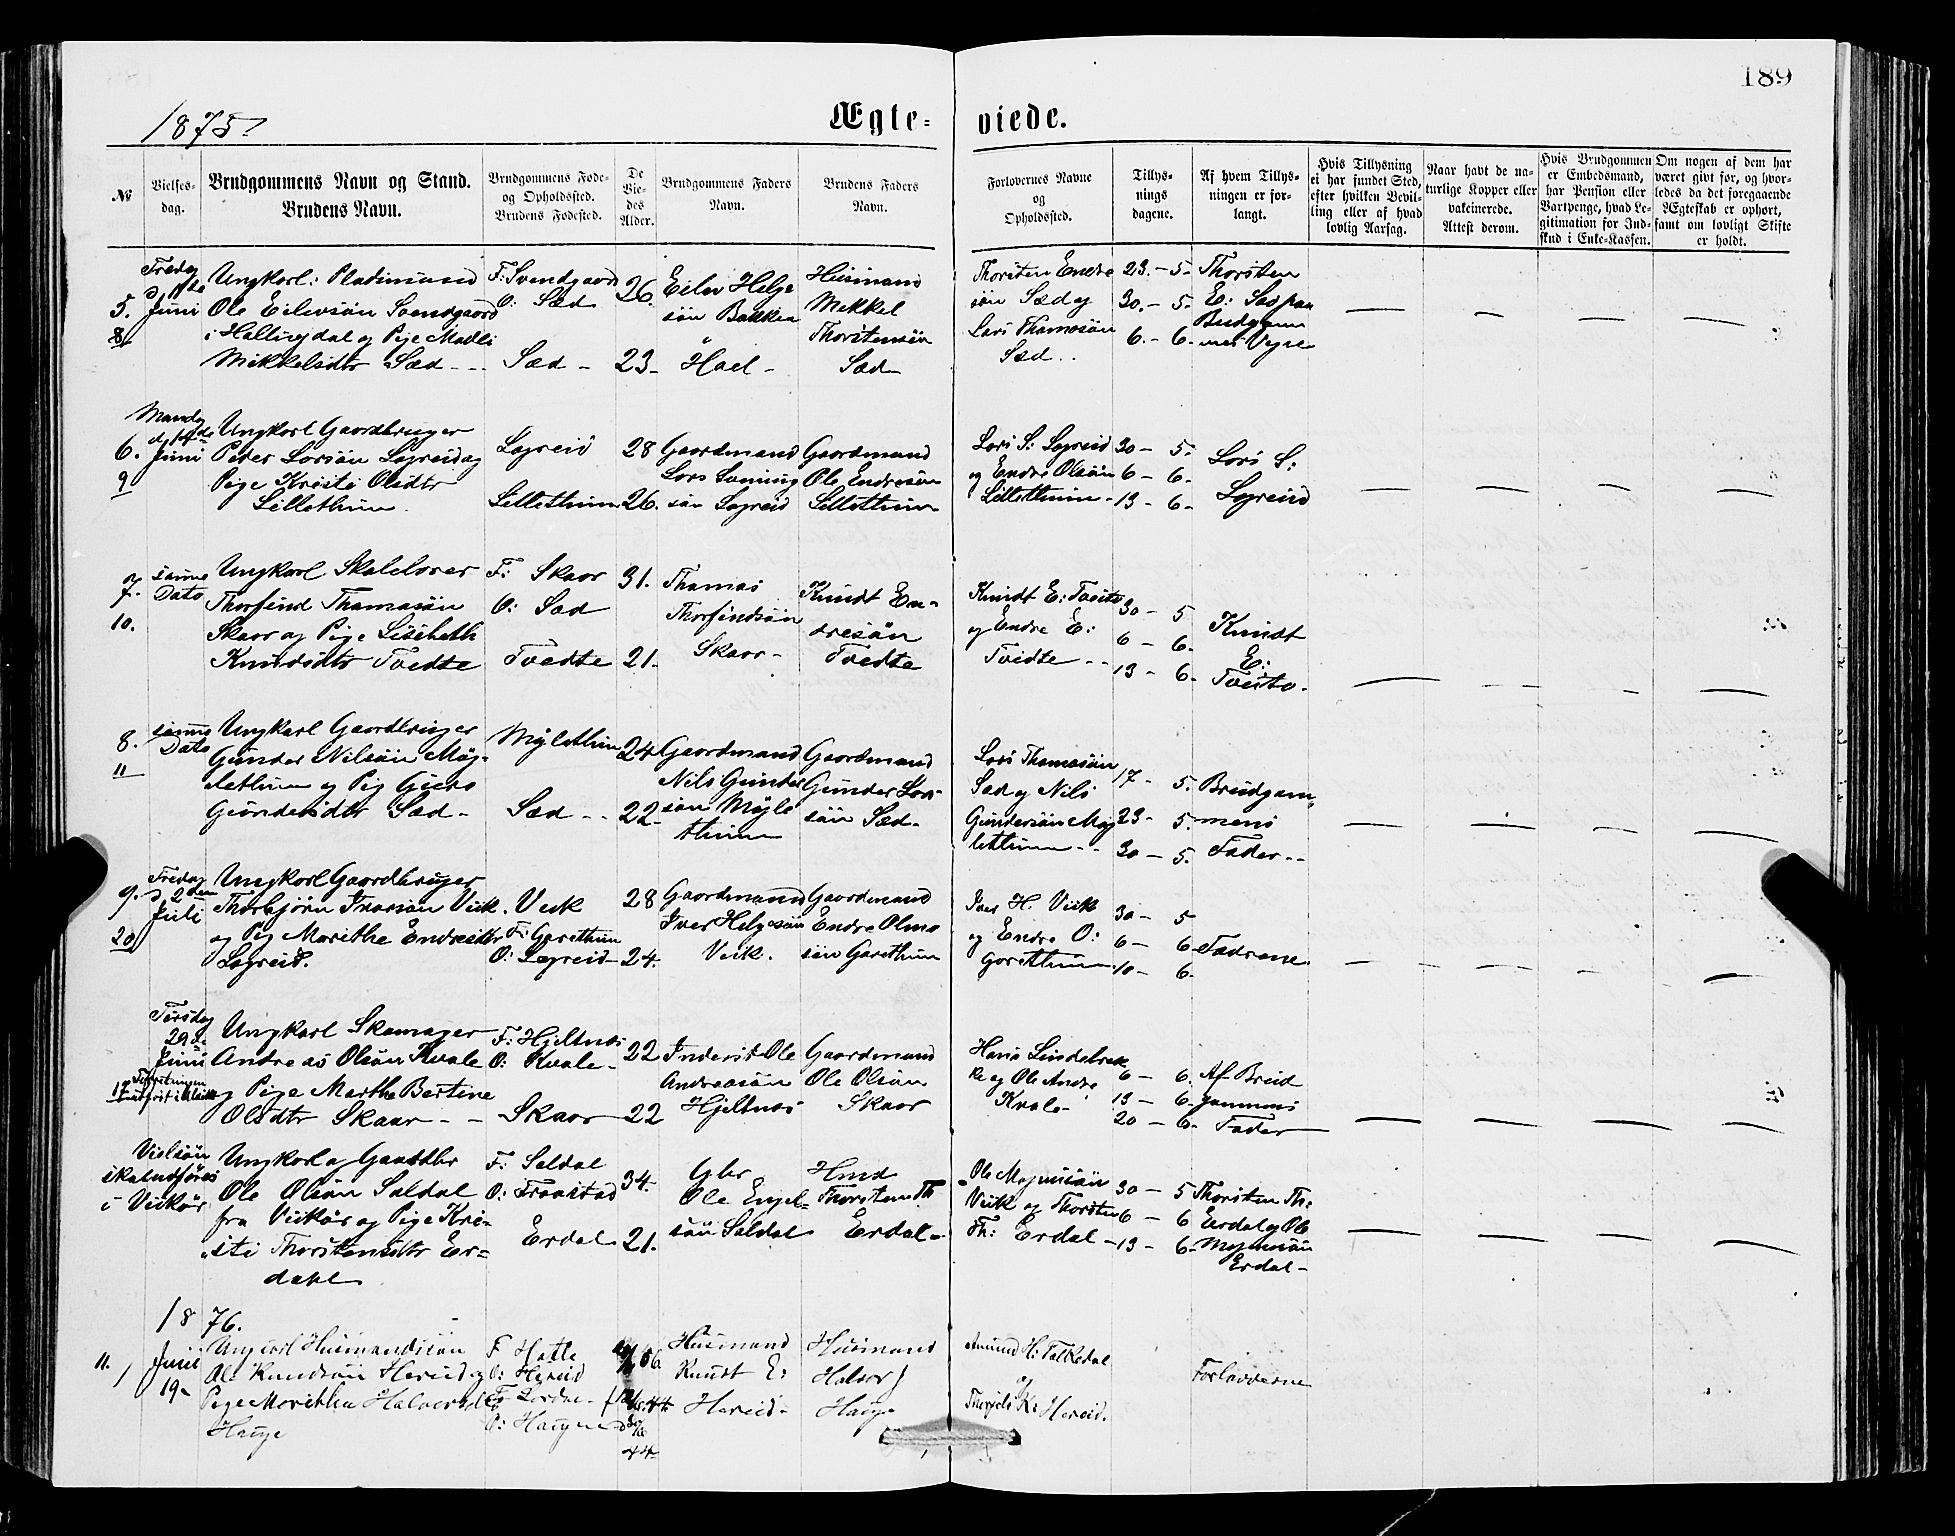 189
1875.
Ægte-
viede.
№
Vielses-
dag.
Brudgommens Navn og Stand.
Brudens Navn.
Brudgommens Føde-
og Opholdssted.
Brudens Fødested.
De
Vie-
des
Alder.
Brudgommens Faders
Navn.
Brudens Faders
Navn.
Forlovernes Navne
og
Opholdssted.
Tillys-
nings
dagene.
Af hvem Tillys-
ningen er for-
langt.
Hvis Tillysning
ei har fundet Sted,
efter hvilken Bevil-
ling eller af hvad
lovlig Aarsag.
Naar havt de na-
turlige Kopper eller
vakcinerede.
Attest derom.
Hvis Brudgommen
er Embedsmand,
har Pension eller
Vartpenge, hvad Le-
gitimation for Ind-
skud i Enke-Kassen.
Om nogen af dem har
været givt før, og hvor-
ledes da det foregaaende
Ægteskab er ophørt,
samt om lovligt Skifte
er holdt.
5.
8
Fredag
Juni
Ungkarl:
Ole Eilevsøn Svendgaard
i Hallingdal og Pige
Mikkelsdtr Sæd - -
F: Svendgaard
O: Sæd
Sæd -
26.
23-
Eilev Helge
søn Bakken
Hoel -
Husmand
Mikkel
Thorstensøn
Sæd
Thorsten Endre
søn Sæd og
Lars Thomasøn
Sæd ..
23. - 5.
30. - 5.
6. - 6.
Thorsten
E: Sæd paa
6.
9
Mandag
d. 14de
Juni
Ungkarl Gaardbruger
Peder Larsøn Lægreid og
Pige Kristi Olsdtr
Lillethun.
Lægreid
Lillethun
28
26.
Gaardmand
Lars
søn Lægreid
Gaardmand
Ole Endresøn
Lillethun
Lars S: Lægreid
og Endre Olsøn
Lillethun -
30 - 5.
6 - 6.
13 - 6.
Lars S:
Lægreid
7.
10.
samme
Dato
Ungkarl
Thorfind Thomasøn
Skaar og Pige Lisibeth
Knudsdtr Tvedte
F: Skaar
O: Sæd
Tvedte
31.
21.
Thomas
Thorfindsøn
Skaar -
Knudt En-
dresøn
Tvedte
Knudt E: Tveito
og Endre E:
Tvedte - -
30 - 5
6 - 6.
13 - 6.
Knudt
E:
Tveito -
8.
11
samme
Dato
Ungkarl Gaardbruger
Gunder Nilsøn Møy-
lethun og Pig Guro
Gundersdtr Sæd -
Møylethun
Sæd - -
24.
22-
Gaardmand
Nils Gunder
søn Møyle
thun
Gaardmand
Gunder Lars
søn Sæd -
Lars Thomasøn
Sæd og Nils
Gundersøn Møy
lethun - -
17 - 5.
23 - 5.
30 - 5.
Brudgom-
mens
Fader - -
9.
20
Fredag
d. 2den
Juli
Ungkarl Gaardbruger
Thorbjørn Iversøn Viik.
og Pig Marithe Endresdtr
Lægreid.
Viik
F: Garethun
O: Lægreid
28
24.
Gaardmand
Iver Helgesøn
Viik.
Gaardmand
Endre Olma
søn Garethun
Iver H. Viik
og Endre O:
Garethun
30 - 5
6 - 6
10 - 6.
Fædrene
Torsdag
Juni
Ungkarl Skomager
Andreas Olsøn Kvale
og Pige Marthe Bertine
Olsdtr Skaar - -
F: Hjeltnæs
O: Kvale -
Skaar
22
22
Inderst Ole
Andreasøn
Hjeltnæs
Gaardmand
Ole Olsøn
Skaar
Hans Lindebræk
ke og Ole Andr:
Kvale -
6 - 6.
13 - 6.
20 - 6.
Af Brud
gommens
Fader
Vielsen
skal udføres
i Vikør
Ungkarl og Gaardbr
Ole Olsøn Soldal
fra Vikør og Pige Kri-
sti Thorstensdtr Er-
dahl
F: Soldal
O:
Erdal
34.
21.
Gbr
Ole Engel-
søn Soldal
Hmd
Thorsten Th
Erdal -
Ole Magnusøn
Viik og Thorsten
Th: Erdal -
30 - 5
6 - 6
13 - 6.
Thorsten Th:
Erdal og Ole
Magnusøn
Erdal -
1876.
11.
1
Juni
19 -
Ungkarl Husmandssøn
Ole Knudsøn Hereid og
Pige Marithe Halvorsdtr
Hauge
F: Hatle
O: Hereid
O: Hauge
44
Husmand
Knudt E:
Hereid -
Husmand
Halvor J
Hauge
Amund H: Tatkedal
og
K: Hereid.
Forloverne